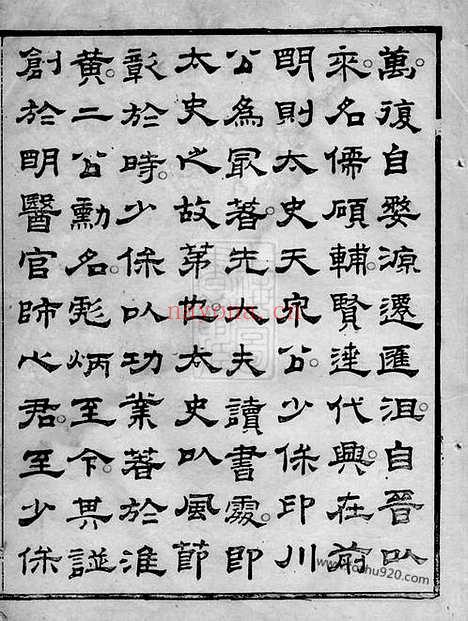 萬。復自婺源遷匯沮。自晉以
來。名儒碩輔。賢達代興。在前
明則太史天泉公。少保印川
公為最著。先大夫讀書處。即
太史之故第也。太史以風節
彰於時。少保以功業著於淮
黃。二公勳名。彪炳至今。其譜
創於明醫官師心君。至少保
nayona.cn